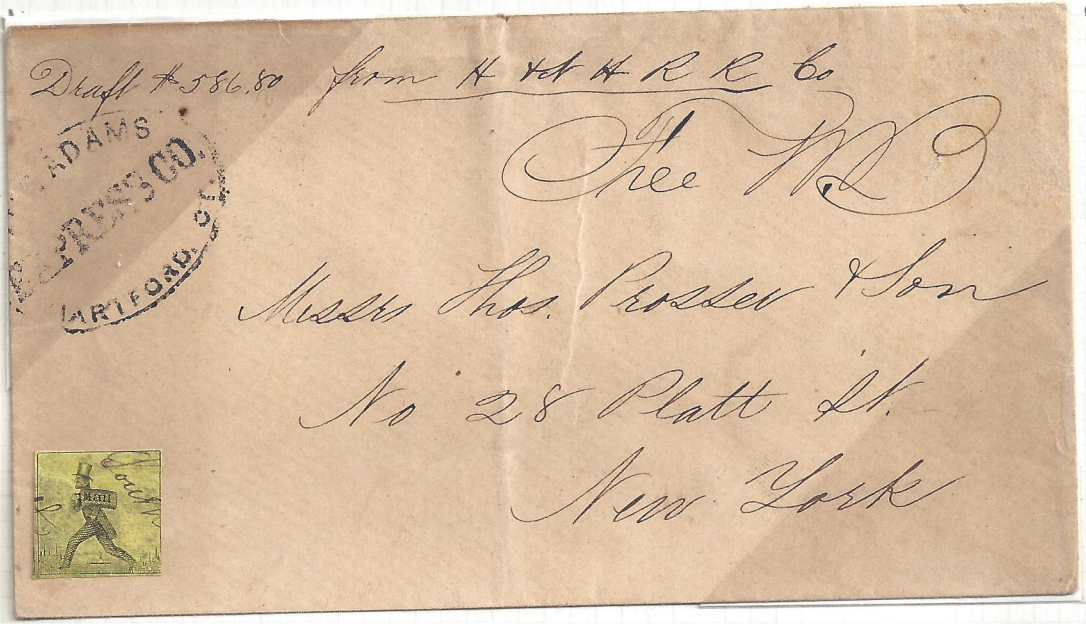 Draft $586.80 from H & N H R R Co
ADAMS
EXPRESS CO.
HARTFORD, CT.
Free
Messrs Thos. Prosser & Son
No 28 Platt St.
New York
Mail
South